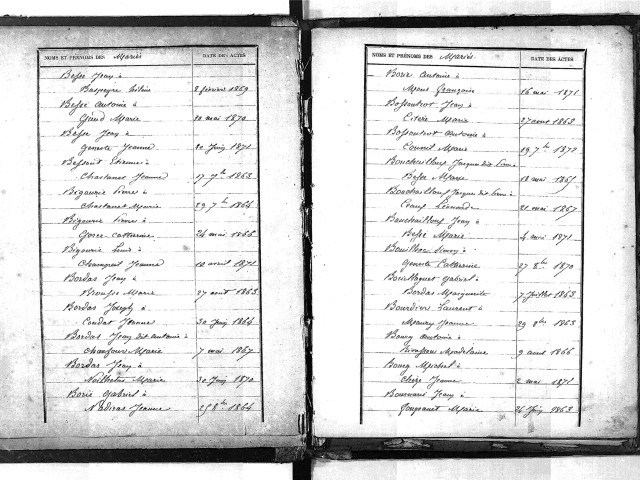 NOMS ET PRÉNOMS DES Mariés DATE DES ACTES
Besse Jean à
Baspeyre 2 février 1869
Besse Antoine à
Giraud Marie 20 mai 1870
Besse Jean à
Geneste Jeanne 20 Juin 1871
Bessent Etienne à
Chastanet Jeanne 17 7bre 1863
Bigourie Pierre à
Chastanet Marie 29 7bre 1864
Bigourie Pierre à
Gorce Catherine 24 mai 1868
Bigourie Louis à
Champeut Jeanne 10 avril 1871
Bordas Jean à
Brousse Marie 27 aout 1863
Bordas Joseph à
Condat Jeanne 30 Juin 1864
Bordas Jean dit Antoine à
Chaufour Marie 7 mai 1867
Bordas Jean à
Marie 30 Juin 1870
Borie Gabriel à
Nadiras Jeanne 25 8bre 1864
NOMS ET PRÉNOMS DES Mariés DATE DES ACTES
Borie Antoine à
Mons Françoise 16 mai 1871
Bossoutrot Jean à
Marie 27 aout 1863
Bossoutrot Antoine à
Marie 19 7bre 1872
Bouchaillou Jacques dit Pierre à
Besse Marie 18 mai 1865
Bouchaillou Jacques dit Pierre à
Léonarde 21 mai 1867
Bouchaillou Jean à
Besse Marie 4 avril 1871
Bouilhac Simon à
Geneste Catherine 27 8bre 1870
Bouilhaguet Gabriel à
Bordas Marguerite 7 Juillet 1863
Bourdier Laurent à
Maury Jeanne 29 8bre 1863
Bourg Antoine à
Madelaine 9 aout 1866
Bourg Michel à
Jeanne 2 mai 1871
Jean à
Marie 26 Juin 1863